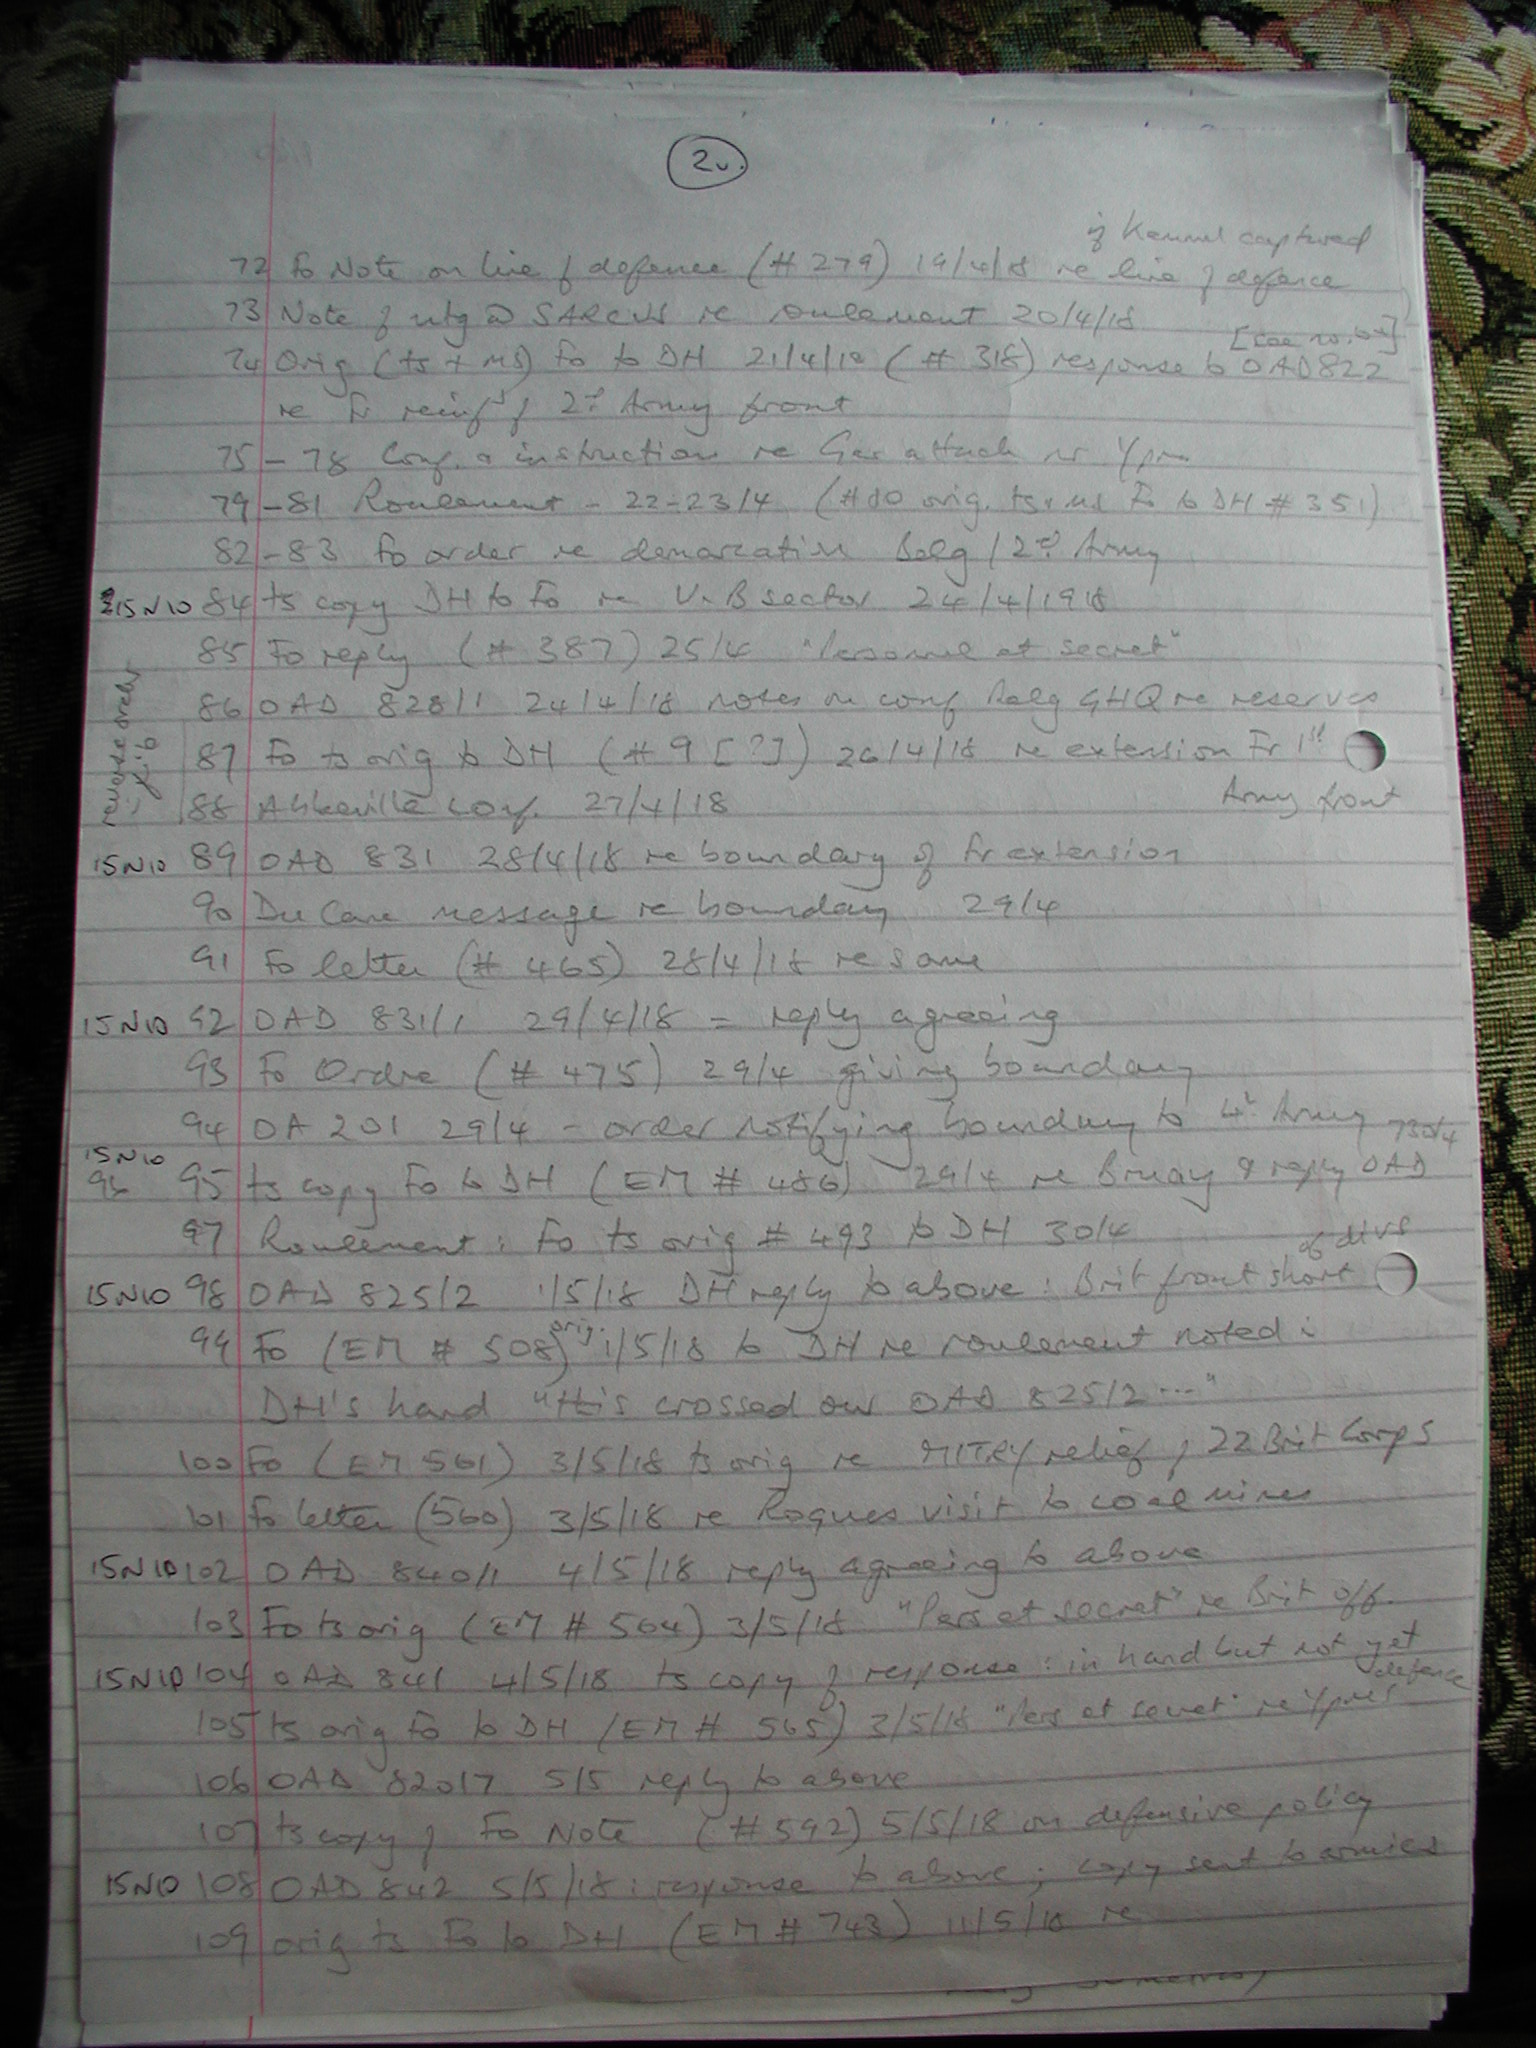 2v.
if Kemmel captured
72 Fo Note on line of defence (# 279) 19/4/18 re line of defence
73 Note of mtg @ SARCUS re roulement 20/4/18
[see no. 64]
74 Orig (ts + MS) Fo to DH 21/4/18 (# 318) response to OAD 822
re Fr reinfts of 2d Army front
75 - 78 Conf. & instructions re Gas attack nr Ypres
79 - 81 Roulement - 22-23/4 (#80 orig. ts + MS Fo to DH # 351)
82 - 83 Fo order re demarcation Belg / 2d Army
15N10 84 ts copy DH to Fo re V-B sector 24/4/1918
85 Fo reply (# 387) 25/4 "Personnel et secret"
86 OAD 828/1 24/4/18 notes on conf Belg GHQ re reserves
reverse order
87 Fo ts orig to DH (# 9 [?]) 26/4/18 re extension Fr 1st
Army front
88 Abbeville conf. 27/4/18
15N10 89 OAD 831 28/4/18 re boundary of Fr extension
90 Du Cane message re boundary 29/4
91 Fo letter (# 465) 28/4/18 re same
15N10 92 OAD 831/1 29/4/18 = reply agreeing
93 Fo Ordre (# 475) 29/4 giving boundary
94 OA 201 29/4 - order notifying boundary to 4th Army
15N10
96 95 ts copy Fo to DH (EM # 486) 29/4 re Bruay & reply OAD
97 Roulement: Fo ts orig # 493 to DH 30/4
of divs
15N10 98 OAD 825/2 1/5/18 DH reply to above: Brit front short
99 Fo (EM # 508) orig. 1/5/18 to DH re roulement noted in
DH's hand "this crossed our OAD 825/2 ..."
100 Fo (EM 561) 3/5/18 ts orig re MITRY relief of 22 Brit Corps
101 Fo letter (560) 3/5/18 re Roques visit to coal mines
15N10 102 OAD 840/1 4/5/18 reply agreeing to above
103 Fo ts orig (EM # 564) 3/5/18 "Pers et secret" re Brit off.
15N10 104 OAD 841 4/5/18 ts copy of response: in hand but not yet
defence
105 ts orig Fo to DH (EM # 565) 3/5/18 "Pers et secret" re Ypres
106 OAD 820/7 5/5 reply to above
107 ts copy of Fo Note (# 592) 5/5/18 on defensive policy
15N10 108 OAD 842 5/5/18: response to above; copy sent to armies
109 orig ts Fo to DH (EM # 743) 11/5/18 re